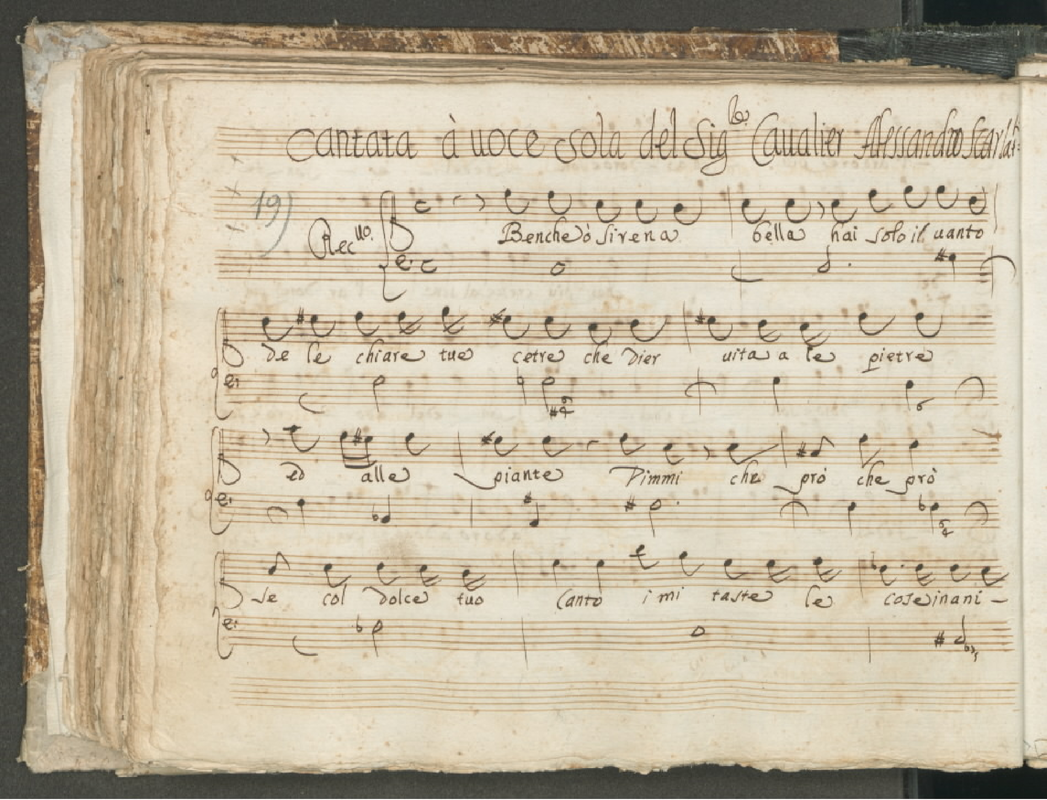 Cantata à uoce sola del Sig.re Caualier Alessandro Scarlat.
19)
Rec.uo
Benche ò sirena bella hai solo il uanto
de le chiare tue cetre che dier uita a le pietre
ed alle piante Dimmi che prò che prò
se col dolce tuo Canto i mi taste le cose inani-